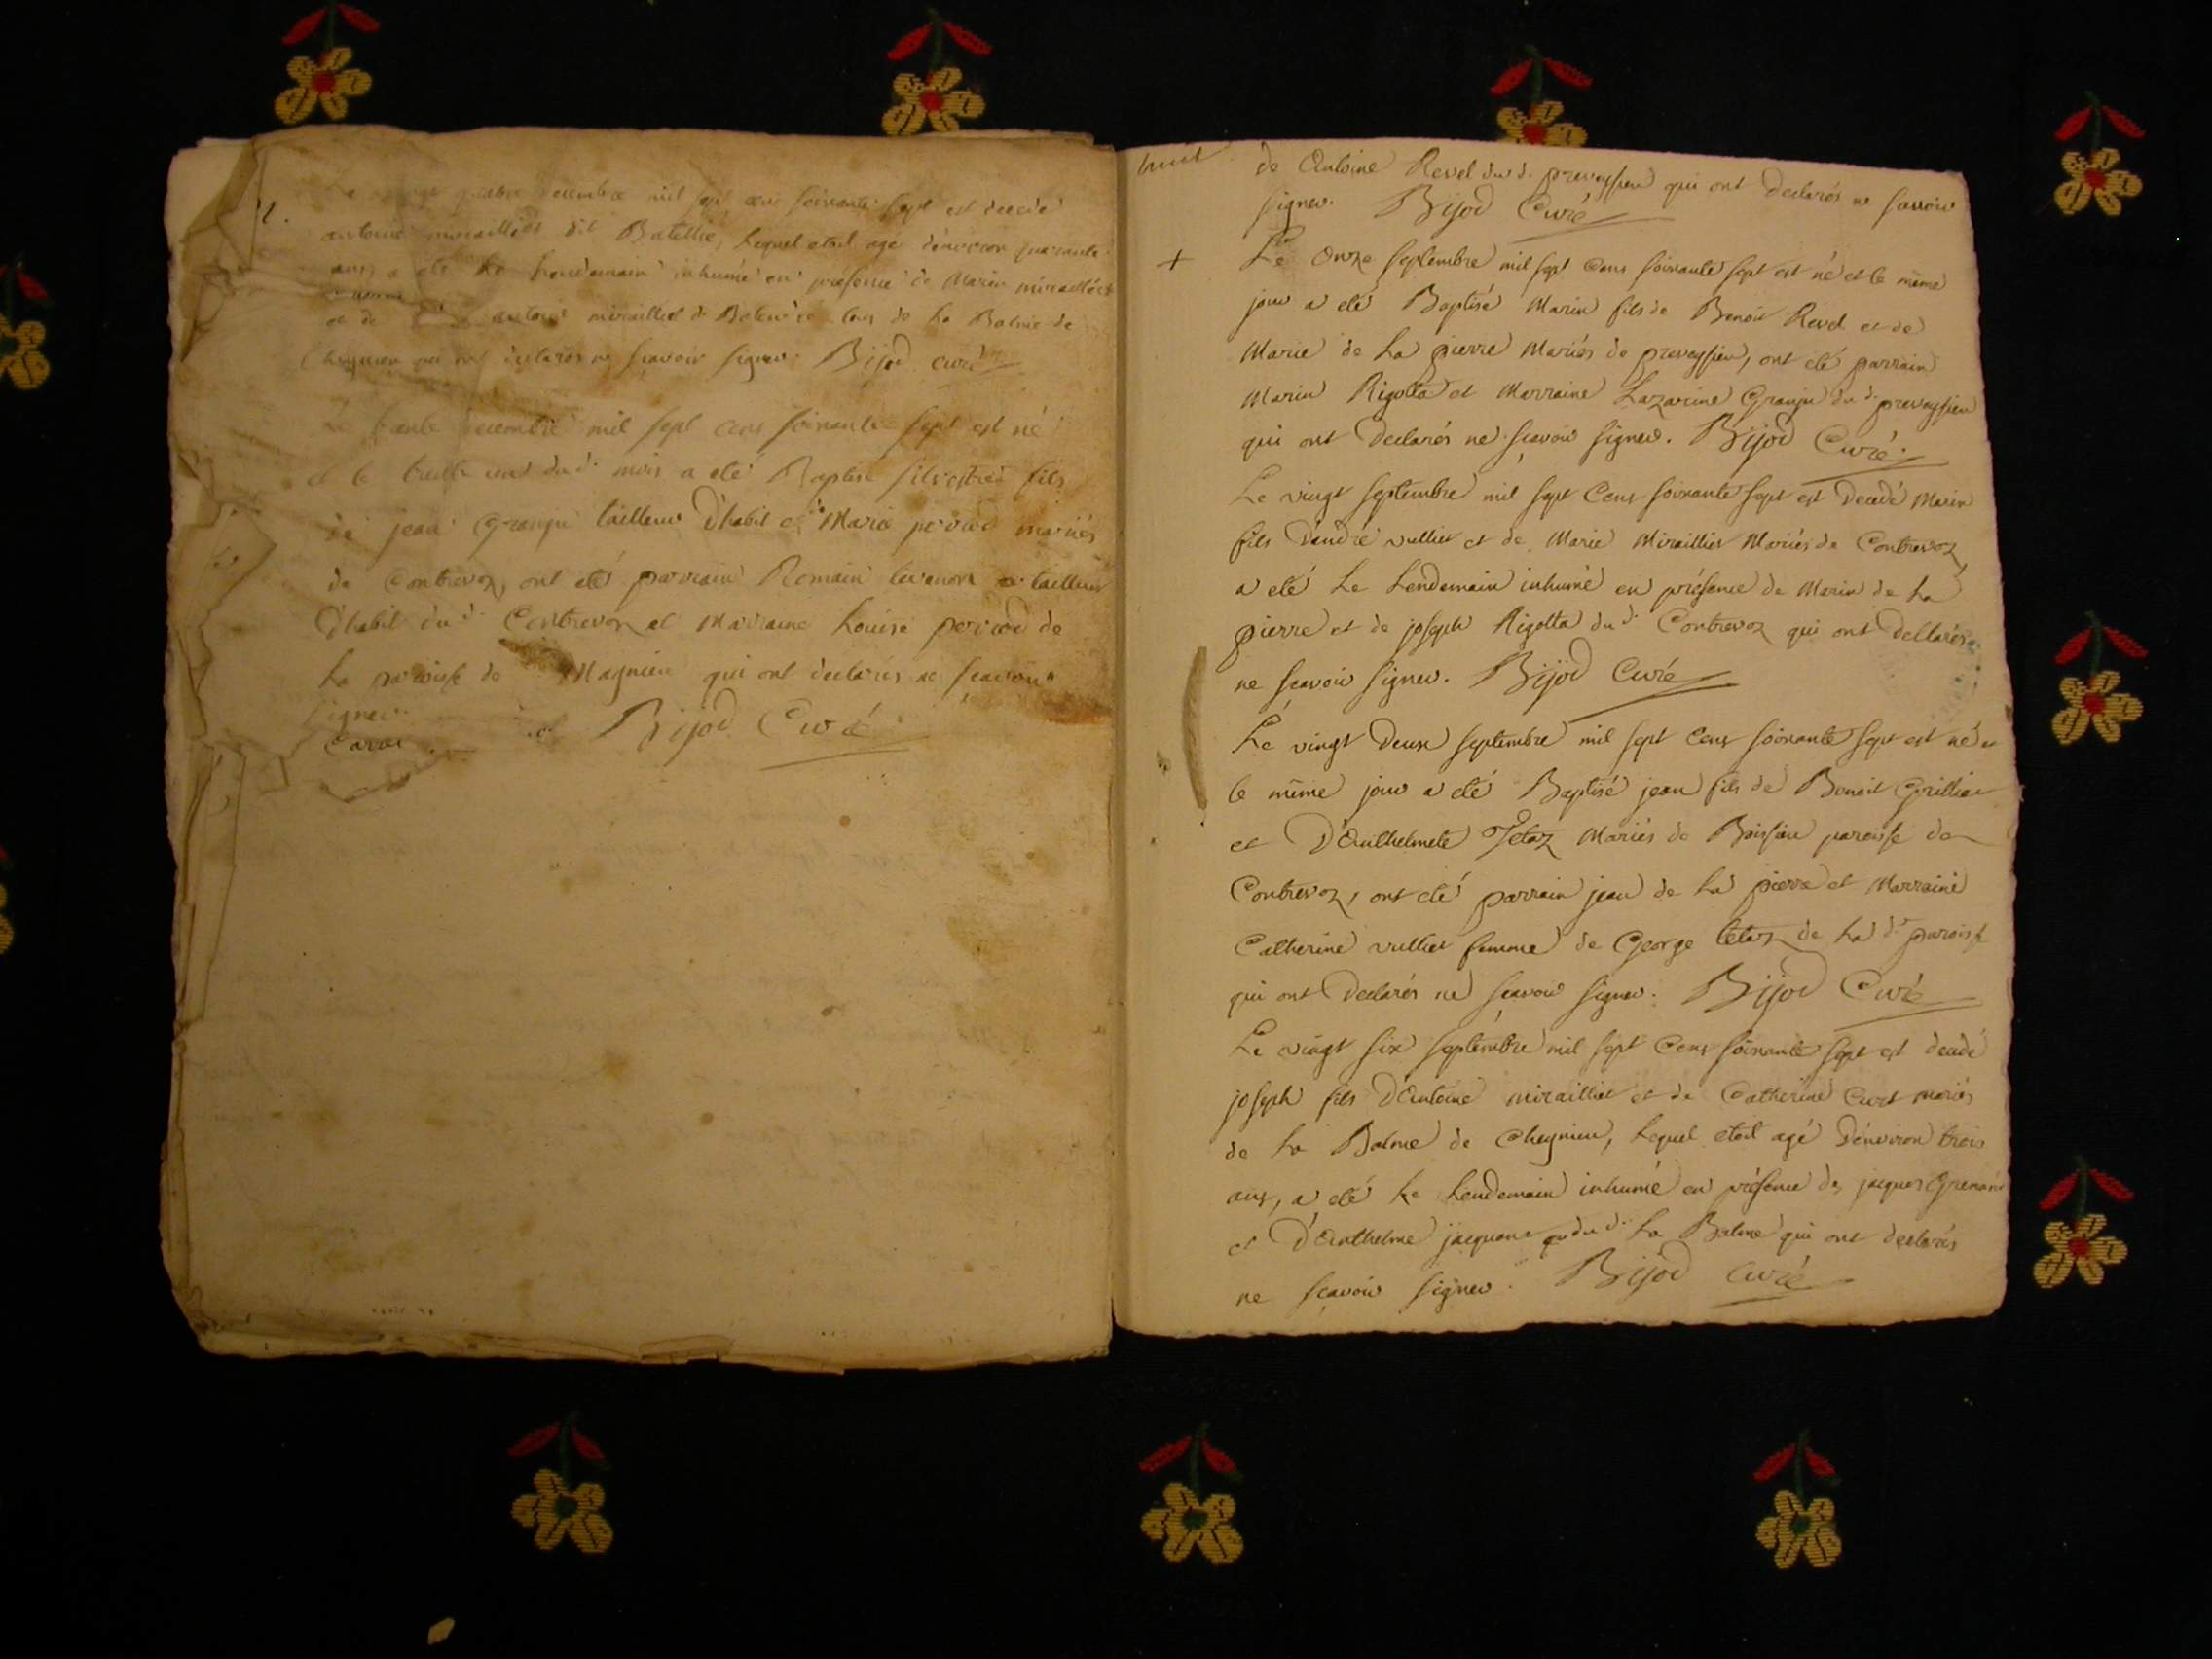 quatre decembre mil sept cens soixante sept est decedé
antoine miraillier dit Batellie, Lequel etoit agé denviron quarante
ans, a eté Le Lendemain inhumé en presence de Marin miraillier
et de antoine miraillier de La Balme de
Cheynieu qui ont declarés ne scavoir signer. Bijod curé
Le trente decembre mil sept cens soixante sept est né
et le trente un dud. mois a eté Baptisé silvestre fils
de jean Granju tailleur D'habit et Marie mariés
de Contrevoz, ont eté parrain Romain tailleur
D'habit dud. Contrevoz et Marraine Louise de
La paroisse de Magnieu qui ont declarés ne scavoir
signer.
Bijod Curé
huit
de Antoine Revel dud. preveyssieu qui ont declarés ne scavoir
signer. Bijod Curé
+ Le Onze septembre mil sept Cens soixante sept est né et le même
jour a eté Baptisé Marin fils de Benoit Revel et de
Marie de La pierre Mariés de preveyssieu, ont eté parrain
Marin Rigollta et Marraine Lazarine Granju dud. preveyssieu
qui ont Declarés ne scavoir signer. Bijod Curé.
Le vingt septembre mil sept Cens soixante sept est Decedé Marin
fils D'andré vullier et de Marie Miraillier Mariés de Contrevoz
a eté Le Lendemain inhumé en présence de Marin de La
pierre et de joseph Rigollta dud. Contrevoz qui ont Dellarés
ne scavoir signer. Bijod Curé
Le vingt Deux septembre mil sept Cens soixante sept est né et
le même jour a eté Baptisé jean fils de Benoit Grillier
et D'Anthelmete Tetaz Mariés de Boissieu paroisse de
Contrevoz, ont eté parrain jean de La pierre et Marraine
Catherine vullier femme de George tetaz de La d. paroisse
qui ont Declarés ne scavoir signer. Bijod Curé
Le vingt six septembre mil sept Cens soixante sept est decedé
joseph fils D'Antoine miraillier et de Catherine Curt mariés
de La Balme de Cheynieu, Lequel etoit agé D'environ trois
ans, a eté Le Lendemain inhumé en présence de jacques
et D'Anthelme dud. La Balme qui ont declarés
ne scavoir signer. Bijod curé